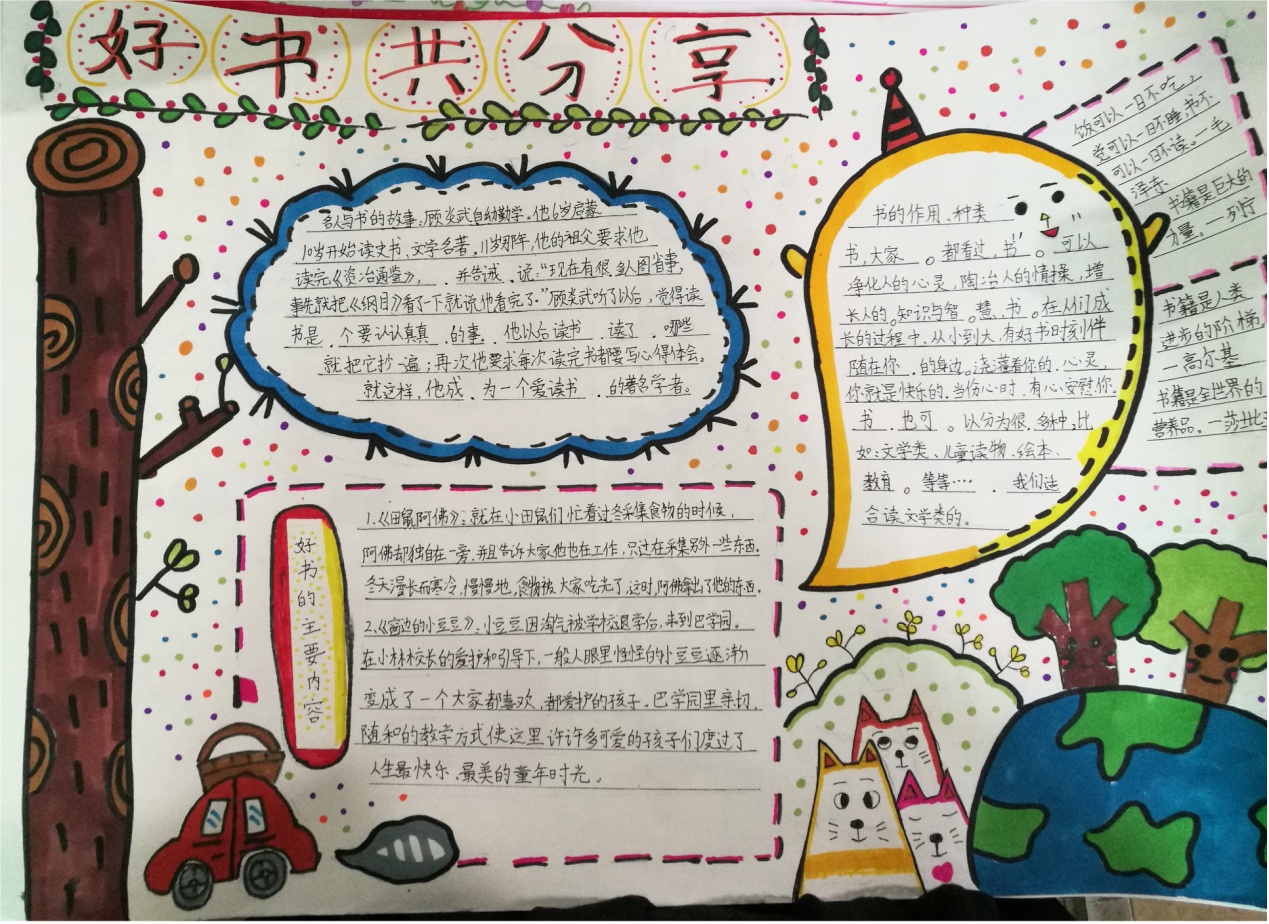 好书共分享
名人与书的故事、顾炎武自幼勤学。他6岁启蒙
10岁开始读史书、文学名著。11岁那年,他的祖父要求他
读完《资治通鉴》, 并告诫、说:“现在有很多人图省事,
事先就把《纲目》看了一下就说他看完了。”顾炎武听了以后,觉得读
书是 个要认认真真 的事、他以后读书 读了 哪些
就把它抄一遍;再次他要求每次读完书都要写心得体会。
就这样,他成 为一个爱读书 的著名学者。
书的作用、种类
书,大家 。都看过,书 。可以
净化人的心灵,陶冶人的情操,增
长人的。知识与智。慧、书。在人们成
长的过程中、从小到大、有好书时刻伴
随在你 的身边。浇灌着你的、心灵,
你就是快乐的、当伤心时、有心安慰你.
书 也可 。以分为很 多种;比
如:文学类、儿童读物、绘本、
教育。等等…… 我们适
合读文学类的。
饭可以一日不吃,
觉可以一日不睡,书不
可以一日不读。—毛
泽东
书籍是巨大的
力量。—列宁
书籍是人类
进步的阶梯,
—高尔基
书籍是全世界的
营养品。—莎士比
好书的主要内容
1.《田鼠阿佛》:就在小田鼠们忙着过冬采集食物的时候,
阿佛却独自在一旁,并且告诉大家他也在工作,只过在采集另外一些东西.
冬天漫长而寒冷,慢慢地,食物被大家吃光了,这时,阿佛拿出了他的东西.
2.《窗边的小豆豆》:小豆豆因淘气被学校退学后,来到巴学园。
在小林校长的爱护和引导下,一般人眼里怪怪的小豆豆逐渐
变成了一个大家都喜欢、都爱护的孩子.巴学园里亲切、
随和的教学方式使这里许许多可爱的孩子们度过了
人生最快乐、最美的童年时光。